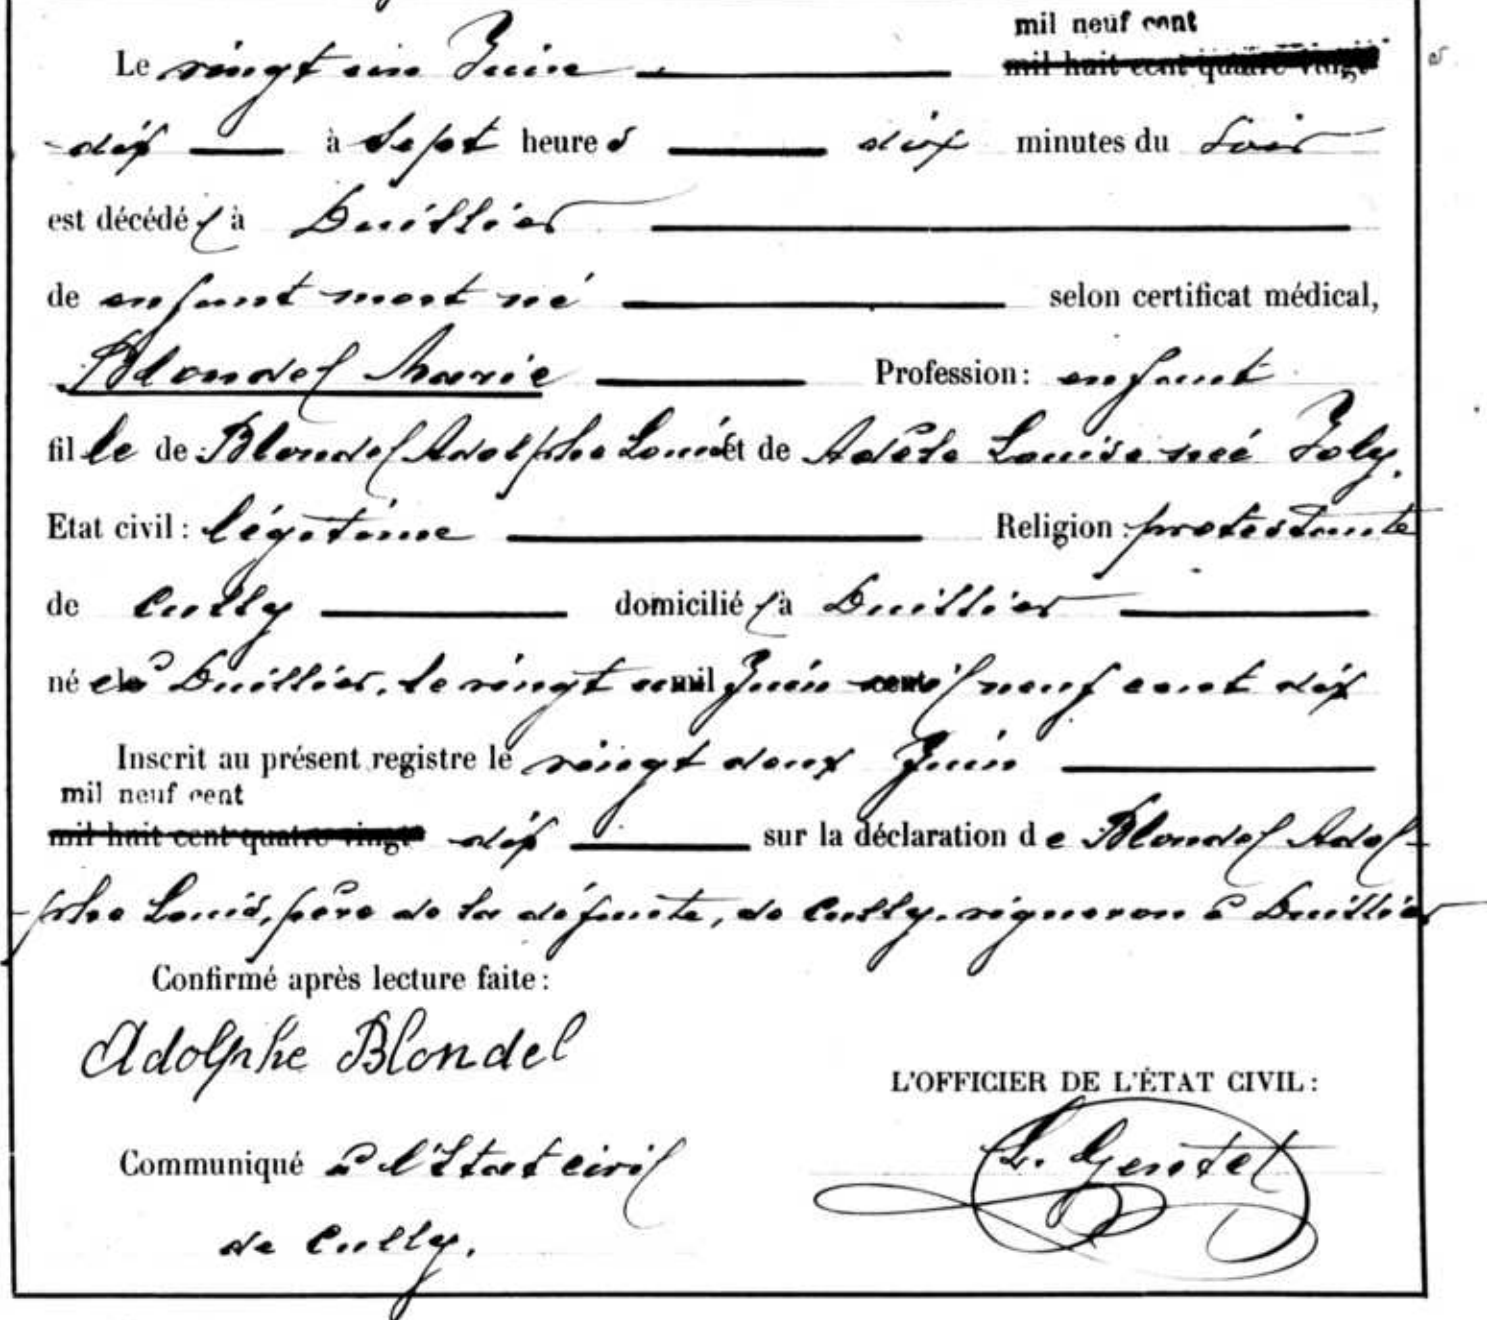 mil neuf cent
Le vingt un Juin mil huit cent quatre vingt
dix à sept heures dix minutes du soir
est décédée à Duillier
de enfant mort né selon certificat médical,
Blondel Marie Profession: enfant
fille de Blondel Adolphe Louis et de Adèle Louise née Joly.
Etat civil: légitime Religion: protestante
de Cully domiciliée à Duillier
née à Duillier, le vingt un mil Juin cent mil neuf cent dix
Inscrit au présent registre le vingt deux Juin
mil neuf cent
mil huit cent quatre vingt dix sur la déclaration de Blondel Adol-
phe Louis, père de la défunte, de Cully, vigneron à Duillier
Confirmé après lecture faite:
Adolphe Blondel
L'OFFICIER DE L'ÉTAT CIVIL:
Communiqué à l'Etat civil L. Gentet
de Cully.